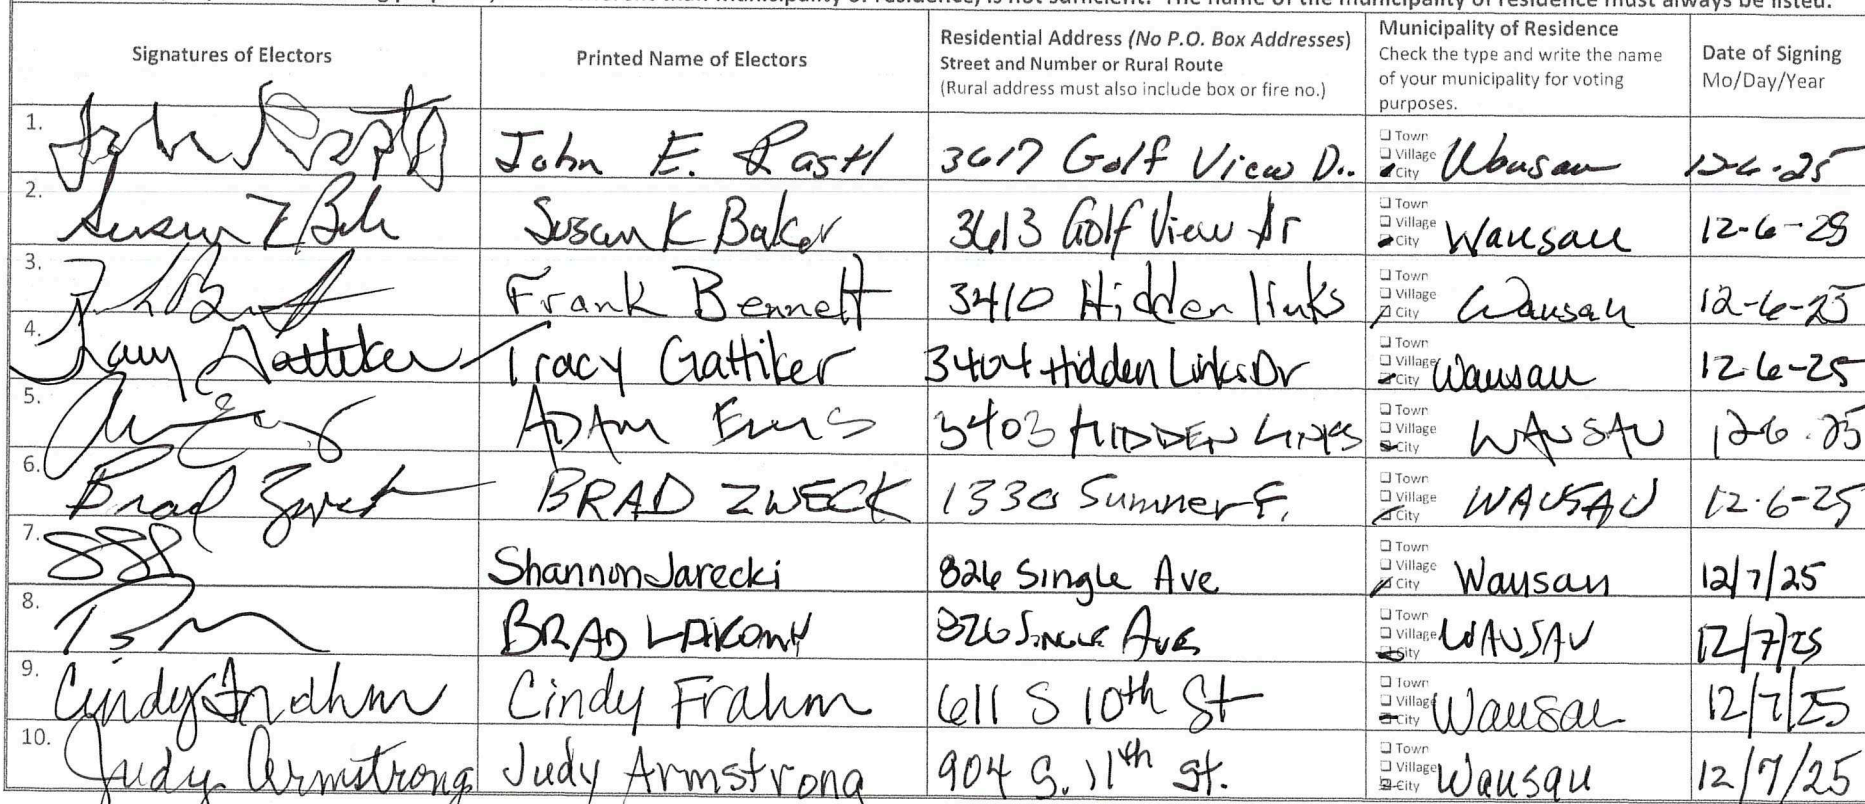 is not sufficient. The name of the municipality of residence must always be listed.
Signatures of Electors
Printed Name of Electors
Residential Address (No P.O. Box Addresses)
Street and Number or Rural Route
(Rural address must also include box or fire no.)
Municipality of Residence
Check the type and write the name
of your municipality for voting
purposes.
Date of Signing
Mo/Day/Year
1. John E. Rastl 3617 Golf View Dr. Town Village City Wausau 12-6-25
2. Susan K Baker 3613 Golf View Dr Town Village City Wausau 12-6-25
3. Frank Bennett 3410 Hidden links Town Village City Wausau 12-6-25
4. Tracy Gattiker Tracy Gattiker 3404 Hidden Links Dr Town Village City Wausau 12-6-25
5. ADAM 3403 HIDDEN LINKS Town Village City WAUSAU 12-6-25
6. Brad Zweck BRAD ZWECK 1330 Sumner Town Village City WAUSAU 12-6-25
7. Shannon Jarecki 826 Single Ave Town Village City Wausau 12/7/25
8. BRAD 826 SINGLE AVE Town Village City WAUSAU 12/7/25
9. Cindy Frahm Cindy Frahm 611 S 10th St Town Village City Wausau 12/7/25
10. Judy Armstrong Judy Armstrong 904 S. 11th St. Town Village City Wausau 12/7/25